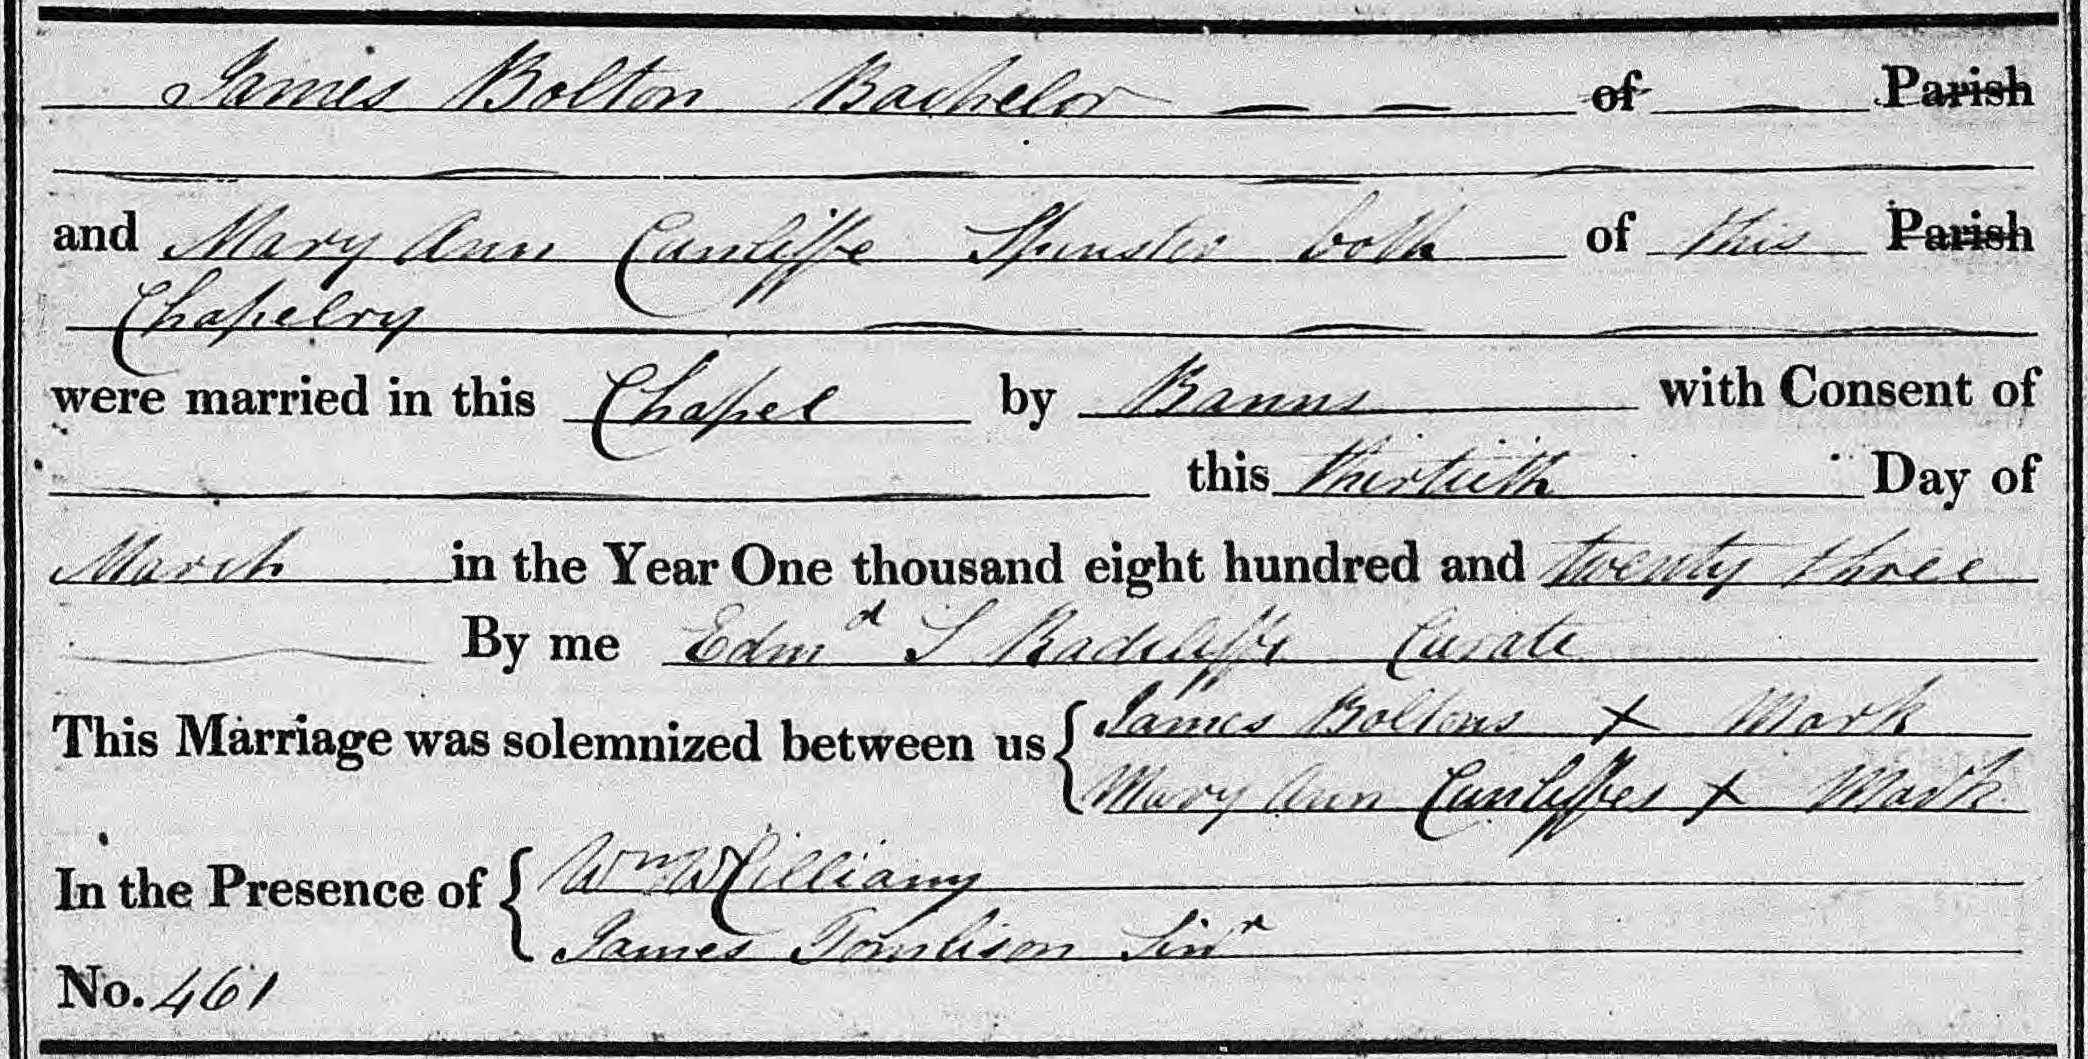 James Bolton Bachelor — — of — Parish
and Mary Ann Cunliffe Spinster both of this Parish
Chapelry
were married in this Chapel by Banns with Consent of
this thirtieth Day of
March in the Year One thousand eight hundred and twenty three
By me Edmd S Radcliffe Curate
This Marriage was solemnized between us { James Boltons X Mark
Mary Ann Cunliffes X Mark
In the Presence of { Wm
James Tomlison Sinr
No. 461